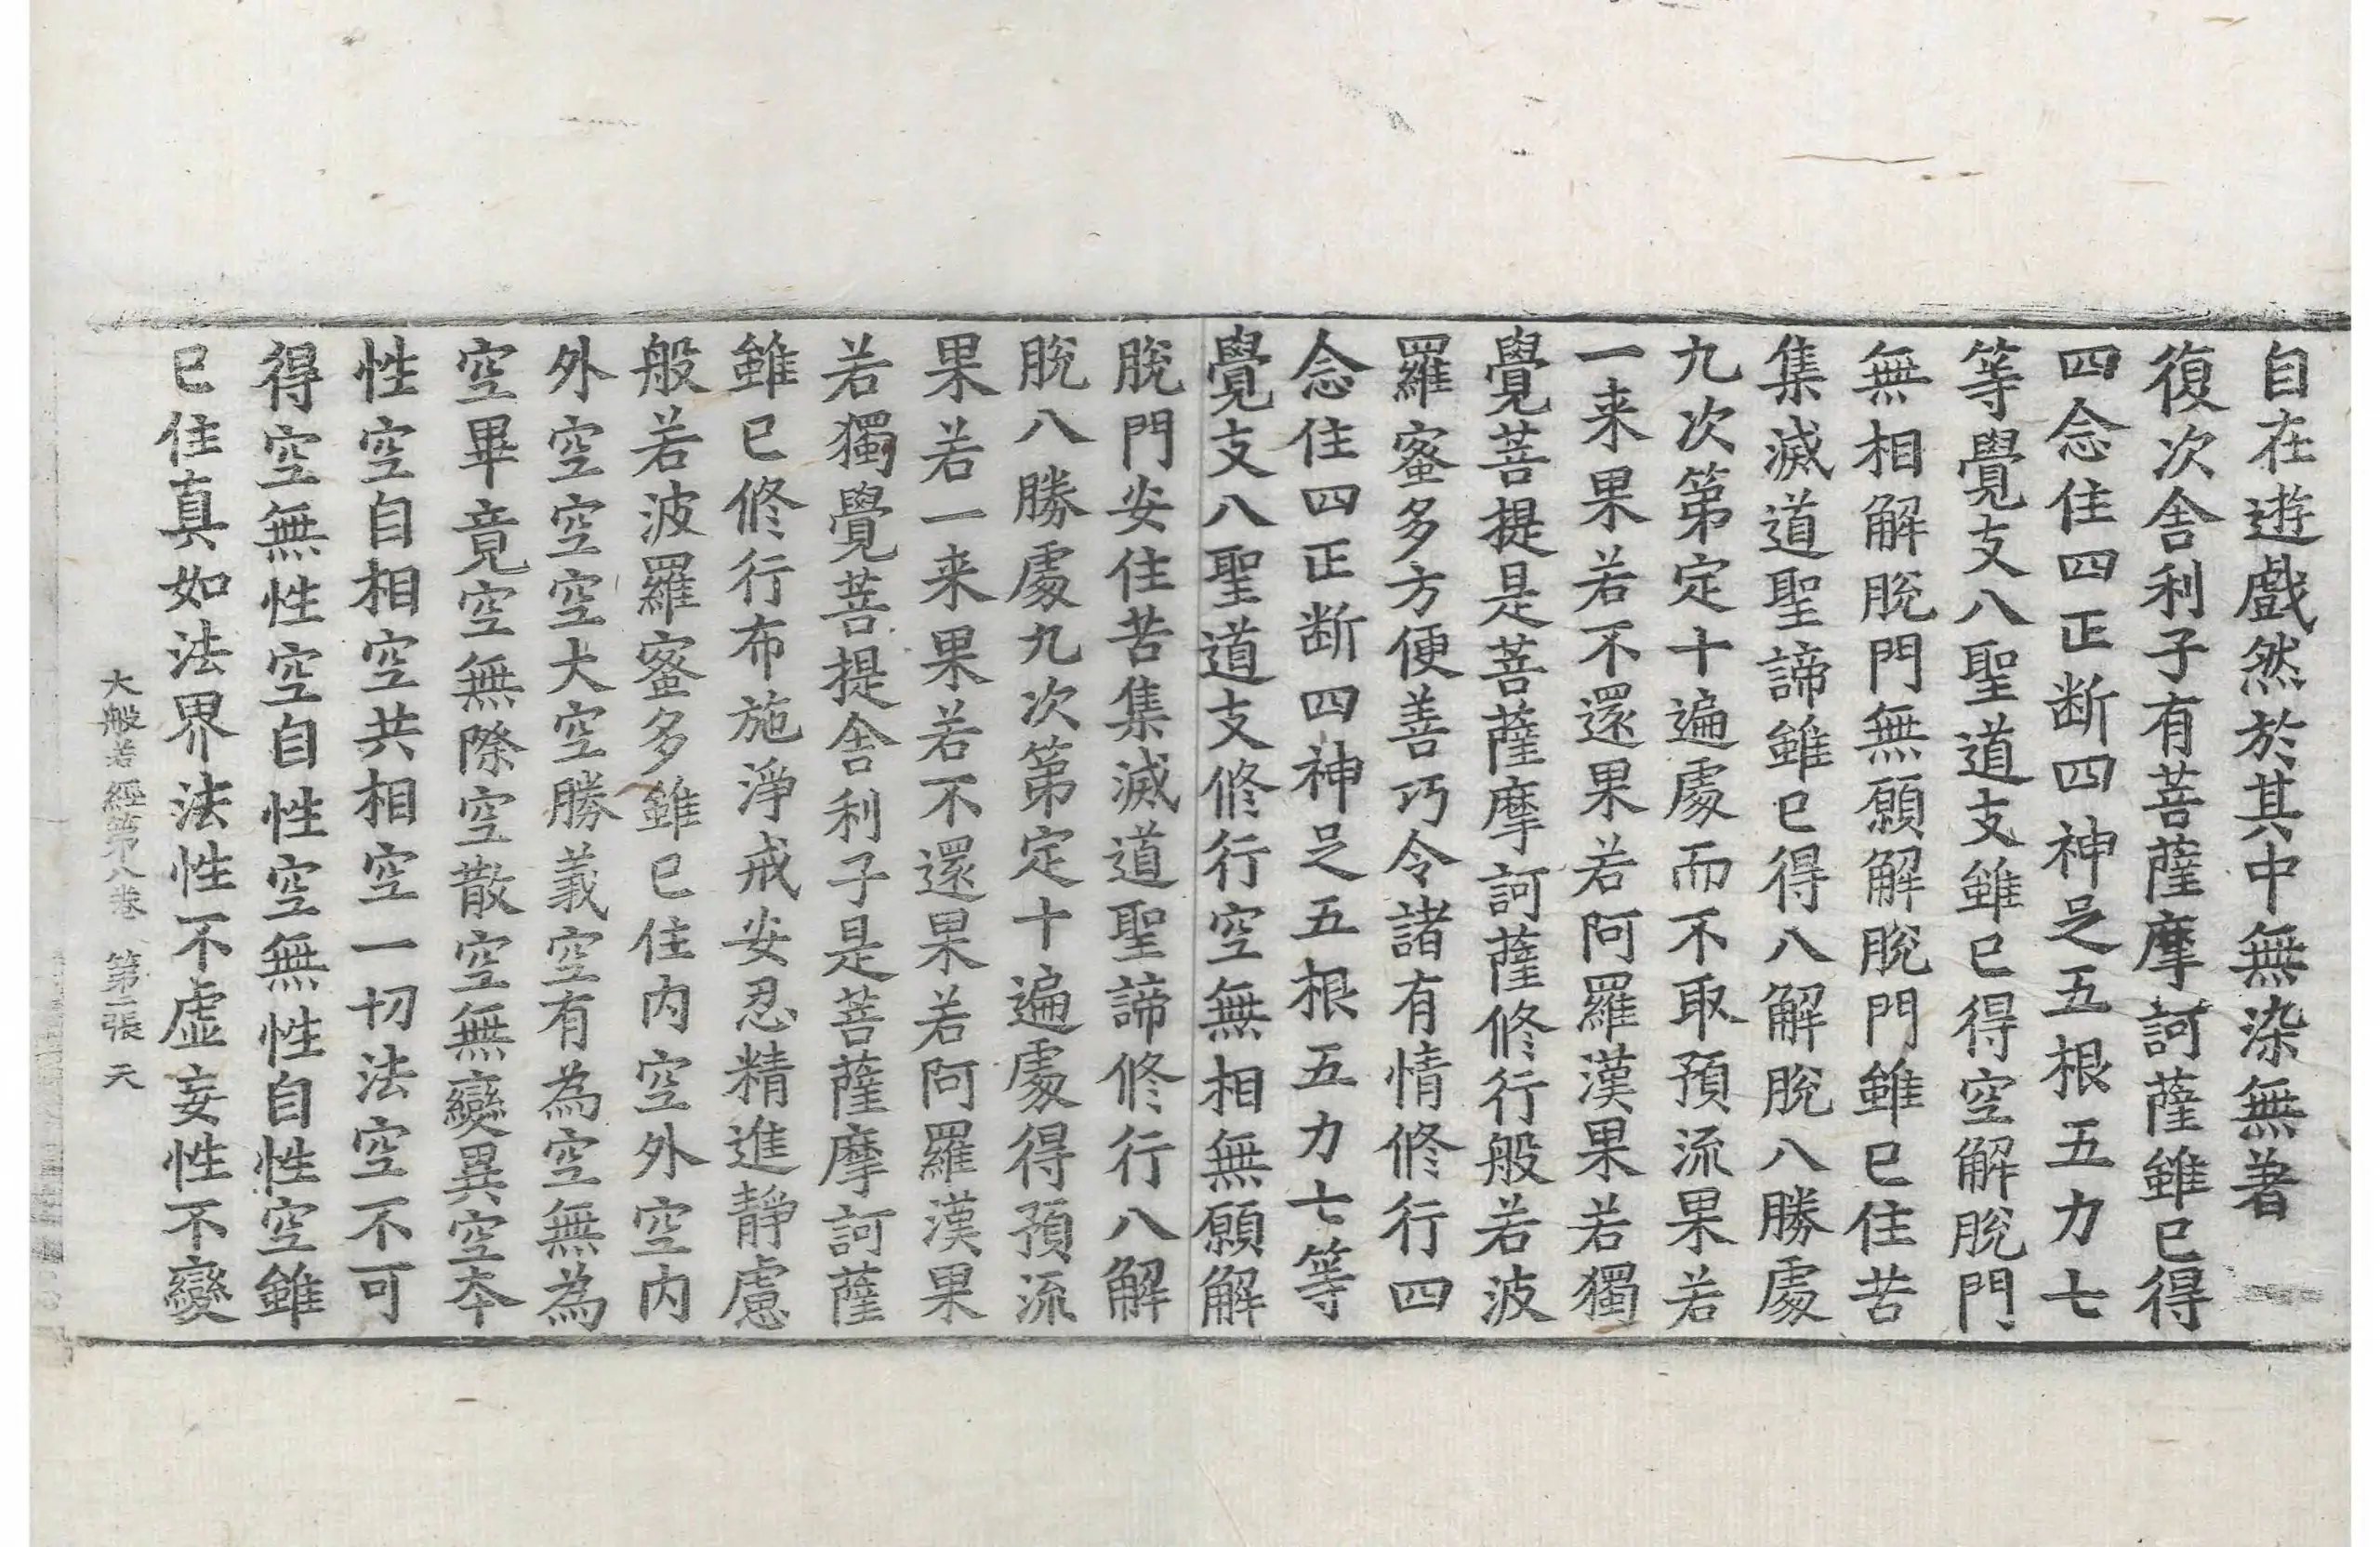 自在遊戲然於其中無染無著
復次舍利子有菩薩摩訶薩雖已得
四念住四正断四神足五根五力七
等覺支八聖道支雖已得空解脫門
無相解脫門無願解脫門雖已住苦
集滅道聖諦雖已得八解脫八勝處
九次第定十遍處而不取預流果若
一来果若不還果若阿羅漢果若獨
覺菩提是菩薩摩訶薩修行般若波
羅蜜多方便善巧令諸有情修行四
念住四正断四神足五根五力七等
覺支八聖道支修行空無相無願解
脫門安住苦集滅道聖諦修行八解
脫八勝處九次第定十遍處得預流
果若一来果若不還果若阿羅漢果
若獨覺菩提舍利子是菩薩摩訶薩
雖已修行布施淨戒安忍精進靜慮
般若波羅蜜多雖已住內空外空內
外空空空大空勝義空有為空無為
空畢竟空無際空散空無變異空本
性空自相空共相空一切法空不可
得空無性空自性空無性自性空雖
已住真如法界法性不虛妄性不變
大般若經第八卷 第二張 天